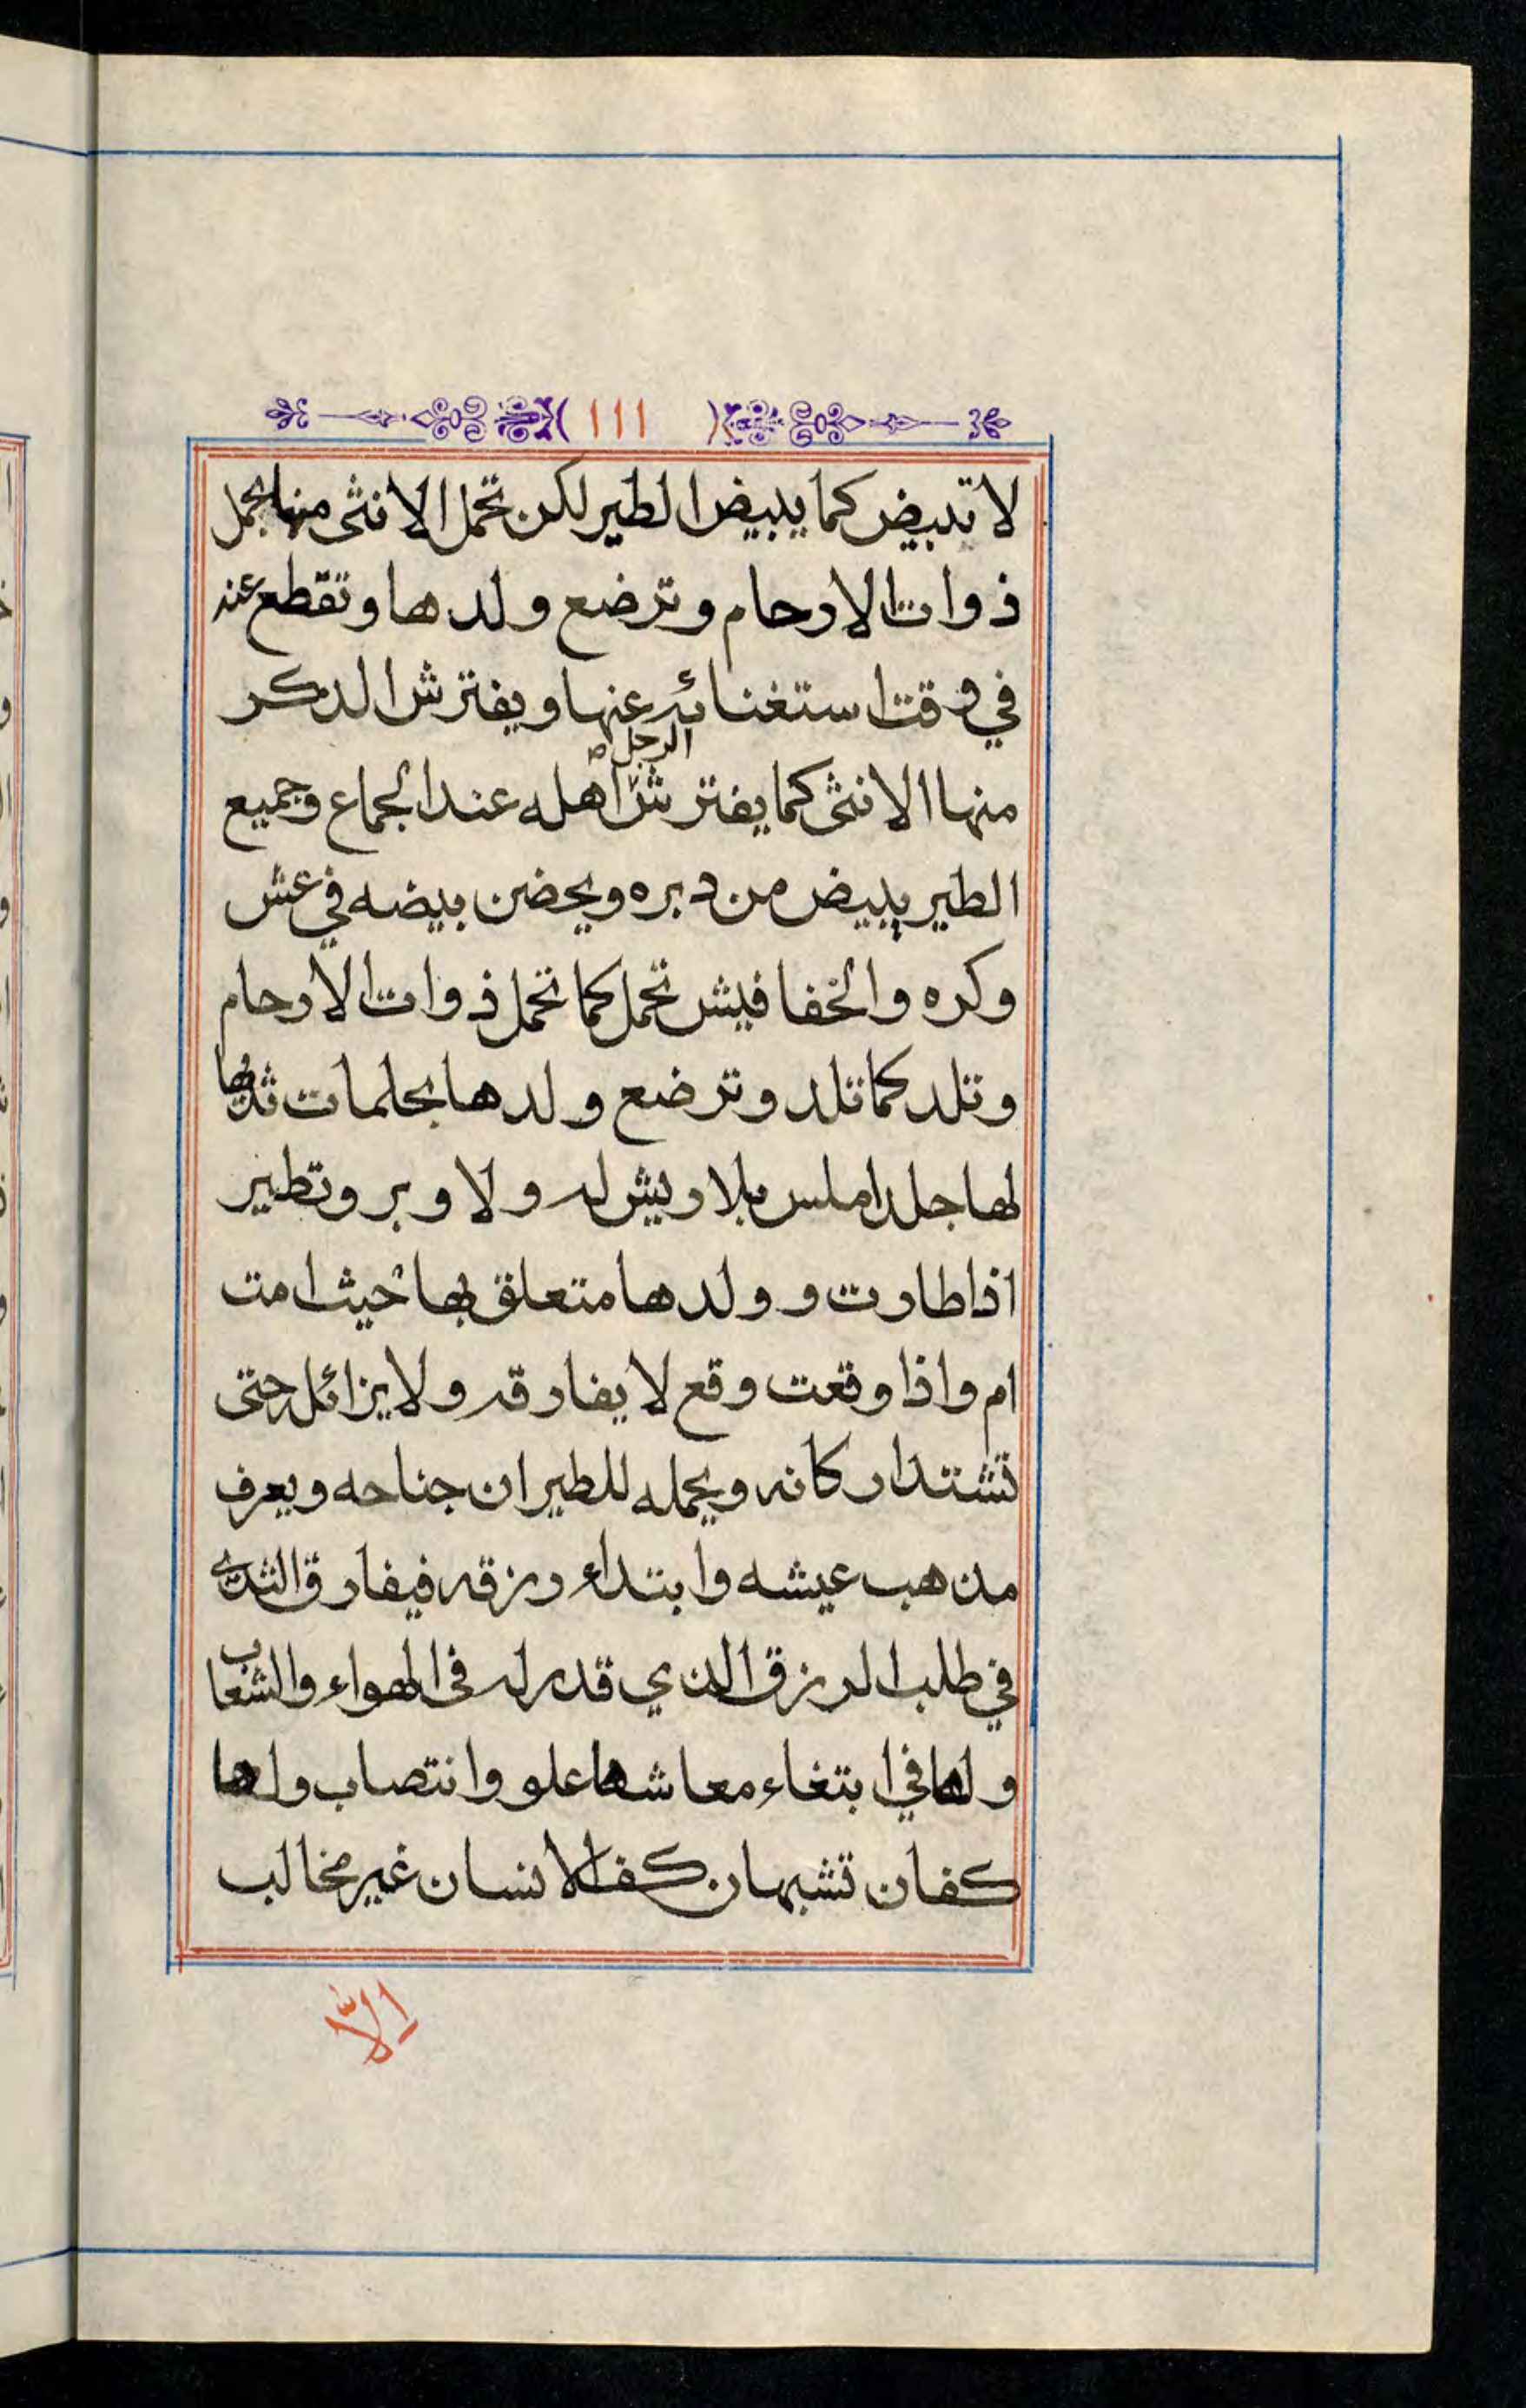 ١١١
لا تبيض كما يبيض الطير لكن تحمل الانثى منها بحمل
ذوات الارحام وترضع ولدها وتقطع عنه
في وقت استغنائه عنها ويفترش الذكر
منها الانثى كما يفترش الرجل اهله عند الجماع وجميع
الطير يبيض من دبره ويحضن بيضه في عش
وكره والخفافيش تحمل كما تحمل ذوات الارحام
وتلد كما تلد وترضع ولدها بحلمات ثديها
لها جلد املس بلا ريش له ولا وبر وتطير
اذا طارت و ولدها متعلق بها حيث امت
ام واذا وقعت وقع لا يفارقه ولا يزائل حتى
تشتد اركانه ويحمله للطيران جناحه ويعرف
مذهب عيشه وابتداء رزقه فيفارق الثدي
في طلب الرزق الذي قدر له فى الهواء والشعاب
ولها في ابتغاء معاشها علو وانتصاب ولها
كفان تشبهان كف الانسان غير مخالب
الاّ